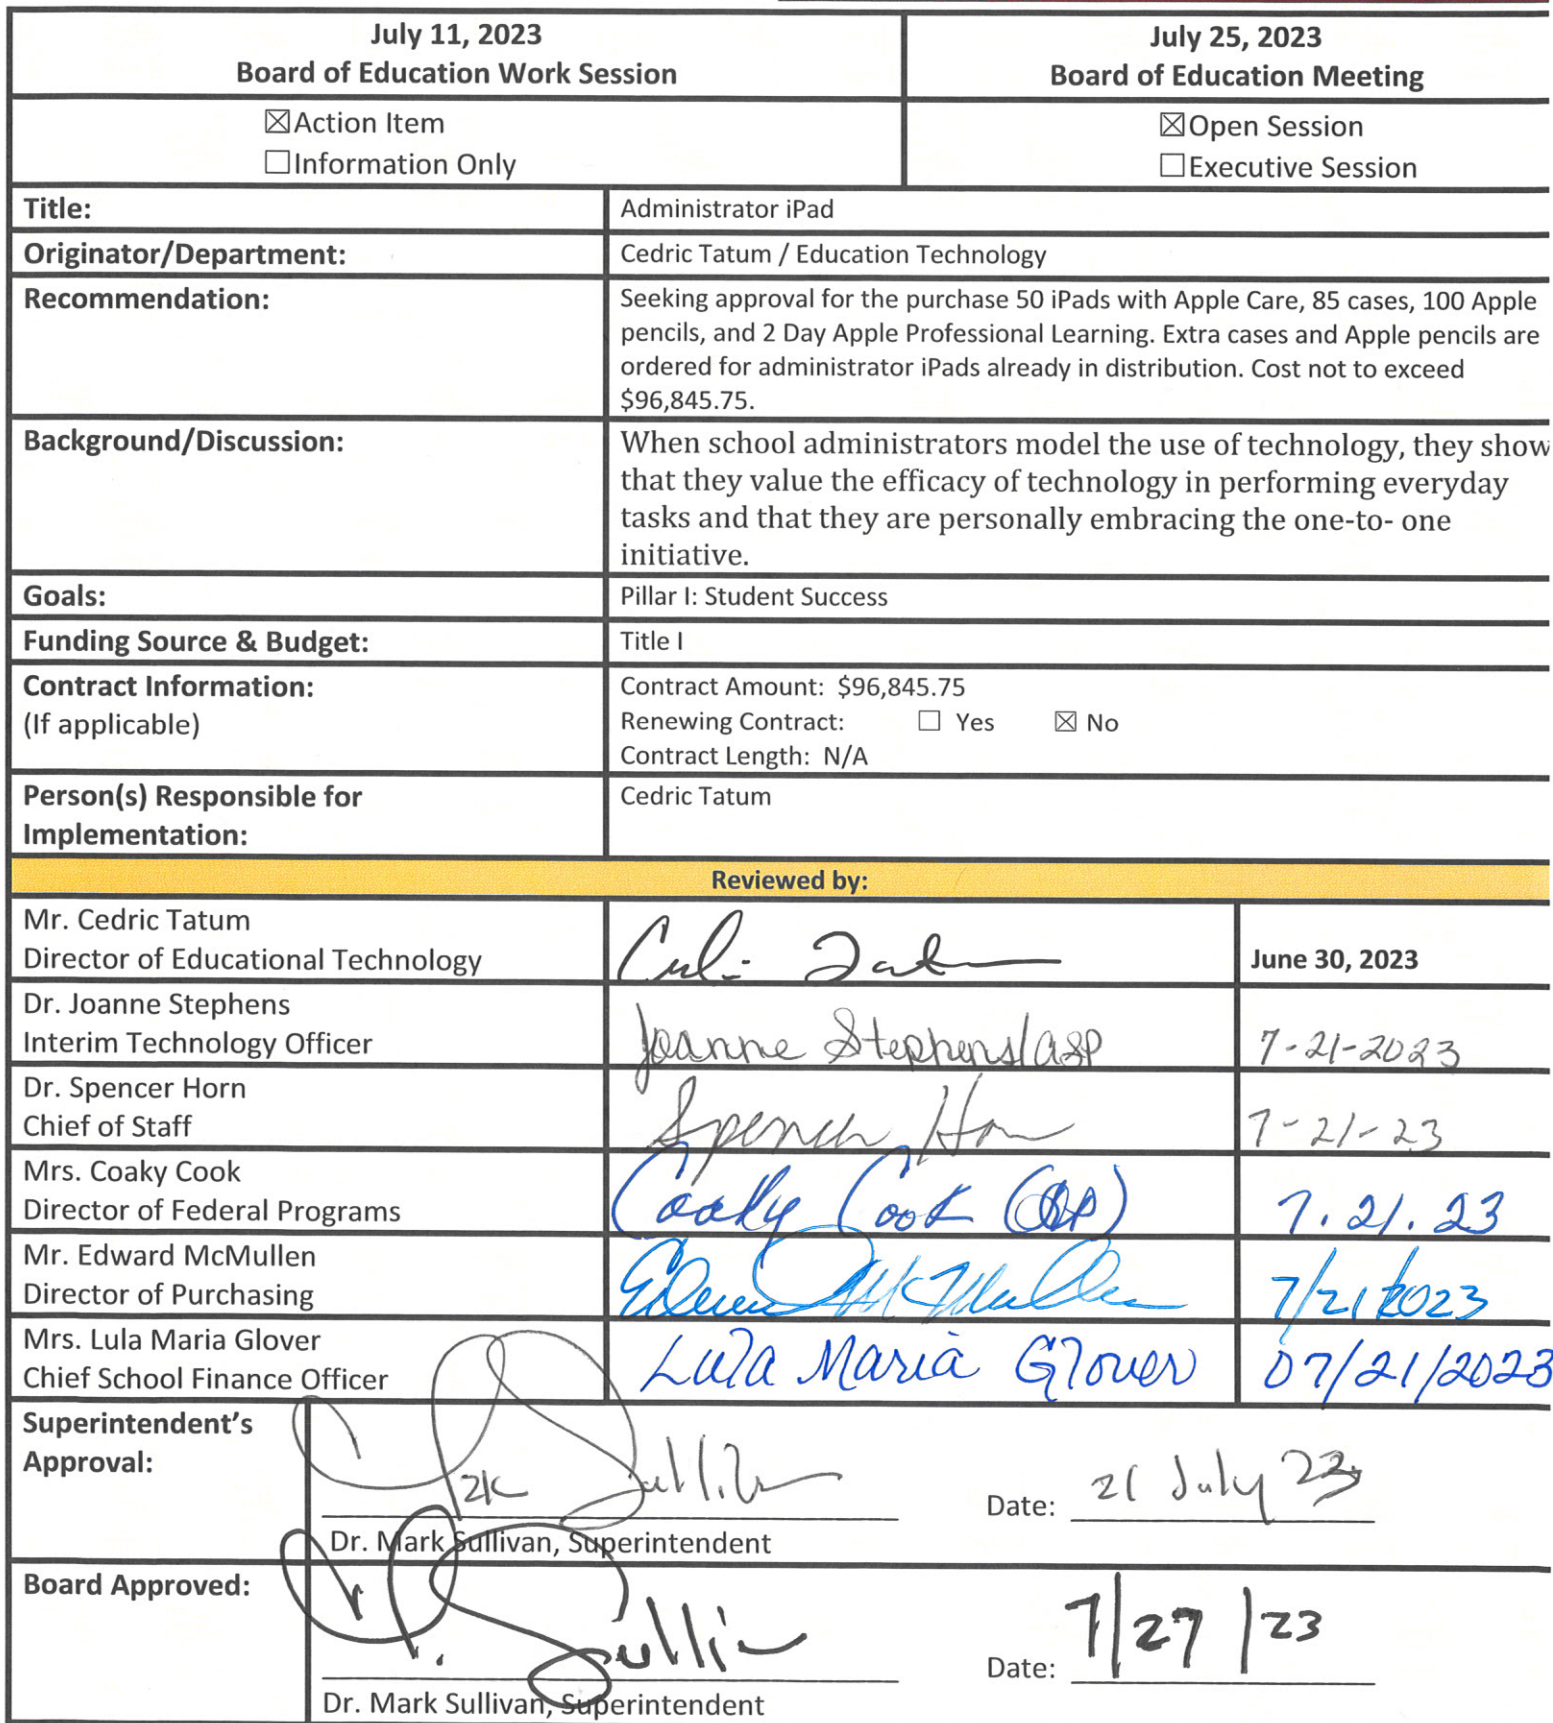 July 11, 2023
Board of Education Work Session
July 25, 2023
Board of Education Meeting
☒Action Item
☐Information Only
☒Open Session
☐Executive Session
Title:
Administrator iPad
Originator/Department:
Cedric Tatum / Education Technology
Recommendation:
Seeking approval for the purchase 50 iPads with Apple Care, 85 cases, 100 Apple
pencils, and 2 Day Apple Professional Learning. Extra cases and Apple pencils are
ordered for administrator iPads already in distribution. Cost not to exceed
$96,845.75.
Background/Discussion:
When school administrators model the use of technology, they show
that they value the efficacy of technology in performing everyday
tasks and that they are personally embracing the one-to- one
initiative.
Goals:
Pillar I: Student Success
Funding Source & Budget:
Title I
Contract Information:
(If applicable)
Contract Amount: $96,845.75
Renewing Contract: ☐ Yes ☒ No
Contract Length: N/A
Person(s) Responsible for
Implementation:
Cedric Tatum
Reviewed by:
Mr. Cedric Tatum
Director of Educational Technology
June 30, 2023
Dr. Joanne Stephens
Interim Technology Officer
Joanne Stephens/asp
7-21-2023
Dr. Spencer Horn
Chief of Staff
Spencer Horn
7-21-23
Mrs. Coaky Cook
Director of Federal Programs
Coaky Cook
7.21.23
Mr. Edward McMullen
Director of Purchasing
Edward McMullen
7/21/2023
Mrs. Lula Maria Glover
Chief School Finance Officer
Lula Maria Glover
07/21/2023
Superintendent's
Approval:
Sullivan
Date: 21 July 23
Dr. Mark Sullivan, Superintendent
Board Approved:
Sullivan
Date: 7/27/23
Dr. Mark Sullivan, Superintendent